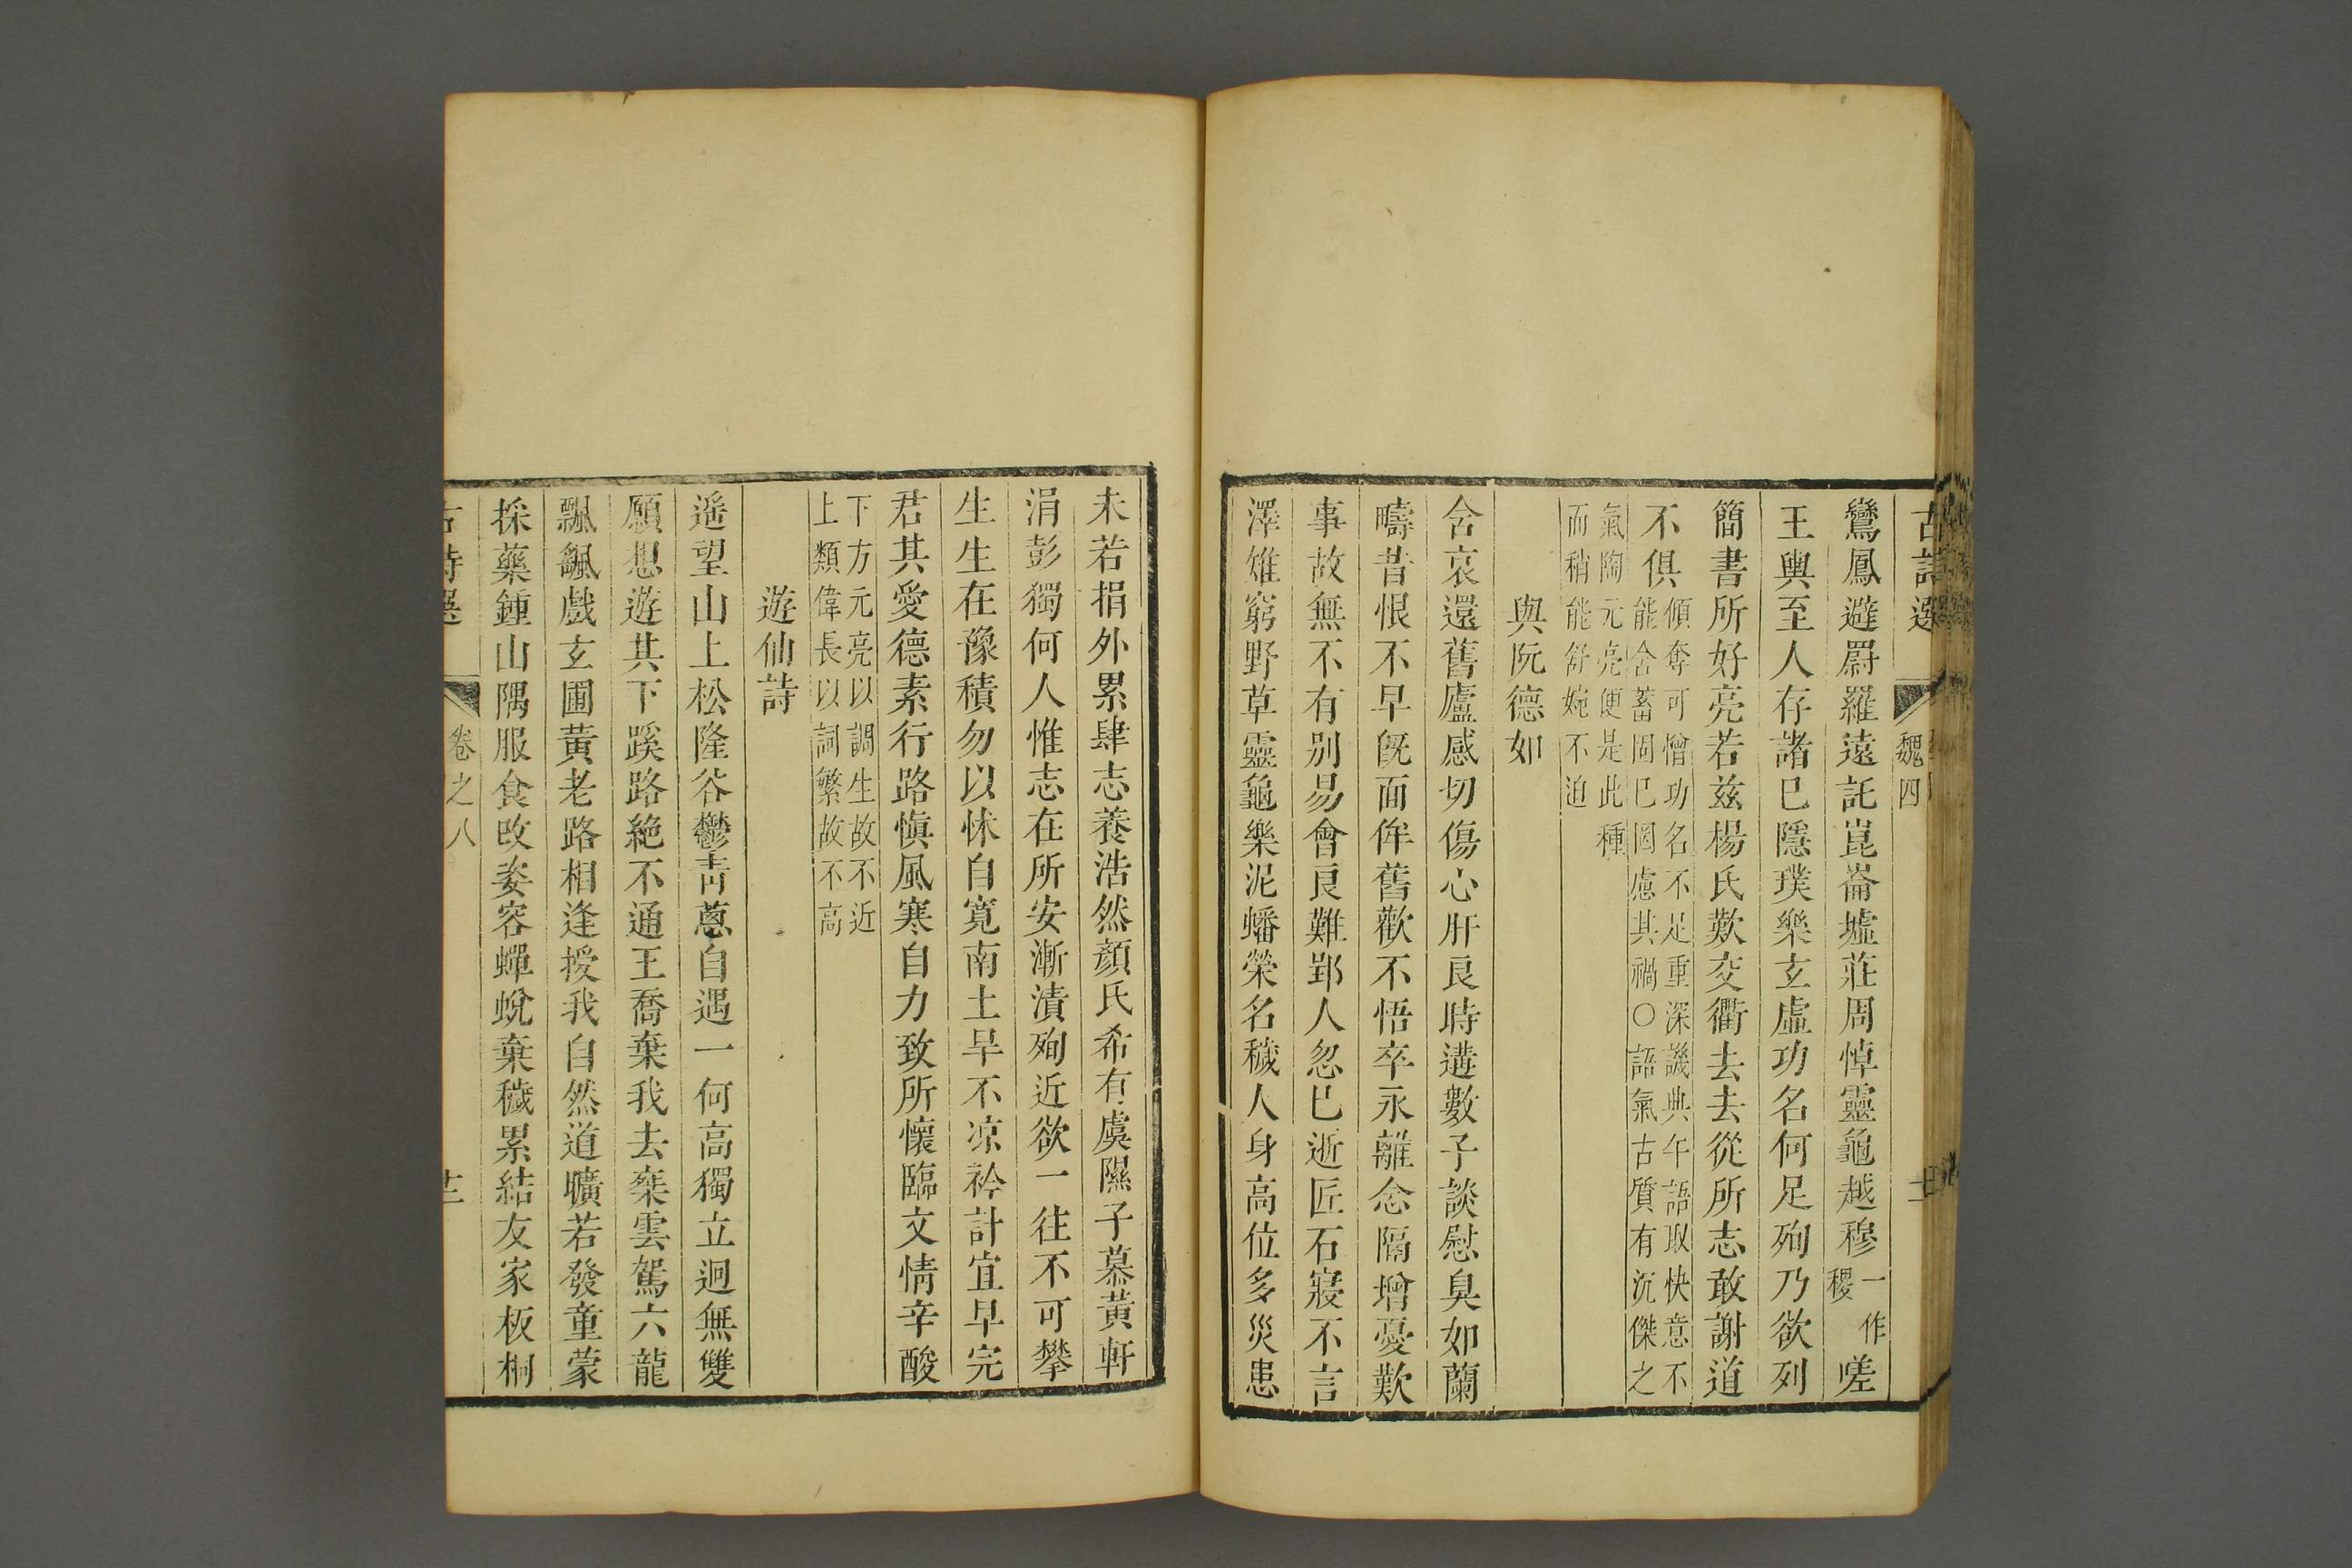 古詩選
魏四
鸞鳳避罻羅遠託崑崙墟莊周悼靈龜越穆一作稷嗟
王輿至人存諸巳隱璞樂玄虛功名何足殉乃欲列
簡書所好亮若茲楊氏歎交衢去去從所志敢謝道
不俱
傾奪可憎功名不足重深譏典午語取快意不
能含蓄固巳罔慮其禍○語氣古質有沉傑之
氣陶元亮便是此種
而稍能舒婉不迫
與阮德如
含哀還舊廬感切傷心肝良時遘數子談慰臭如蘭
疇昔恨不早旣面侔舊歡不悟卒永離念隔增憂歎
事故無不有別易會良難郢人忽巳逝匠石寢不言
澤雉窮野草靈龜樂泥蟠榮名穢人身高位多災患
未若捐外累肆志養浩然顏氏希有虞隰子慕黃軒
涓彭獨何人惟志在所安漸漬殉近欲一往不可攀
生生在豫積勿以怵自寬南土旱不凉衿計宜早完
君其愛德素行路愼風寒自力致所懷臨文情辛酸
下方元亮以調生故不近
上類偉長以詞繁故不高
遊仙詩
遥望山上松隆谷鬱靑蔥自遇一何高獨立迥無雙
願想遊其下蹊路絶不通王喬棄我去椉雲駕六龍
飄颻戲玄圃黃老路相逢授我自然道曠若發童蒙
採藥鍾山隅服食改姿容蟬蛻棄穢累結友家板桐
古詩選
卷之八
十二